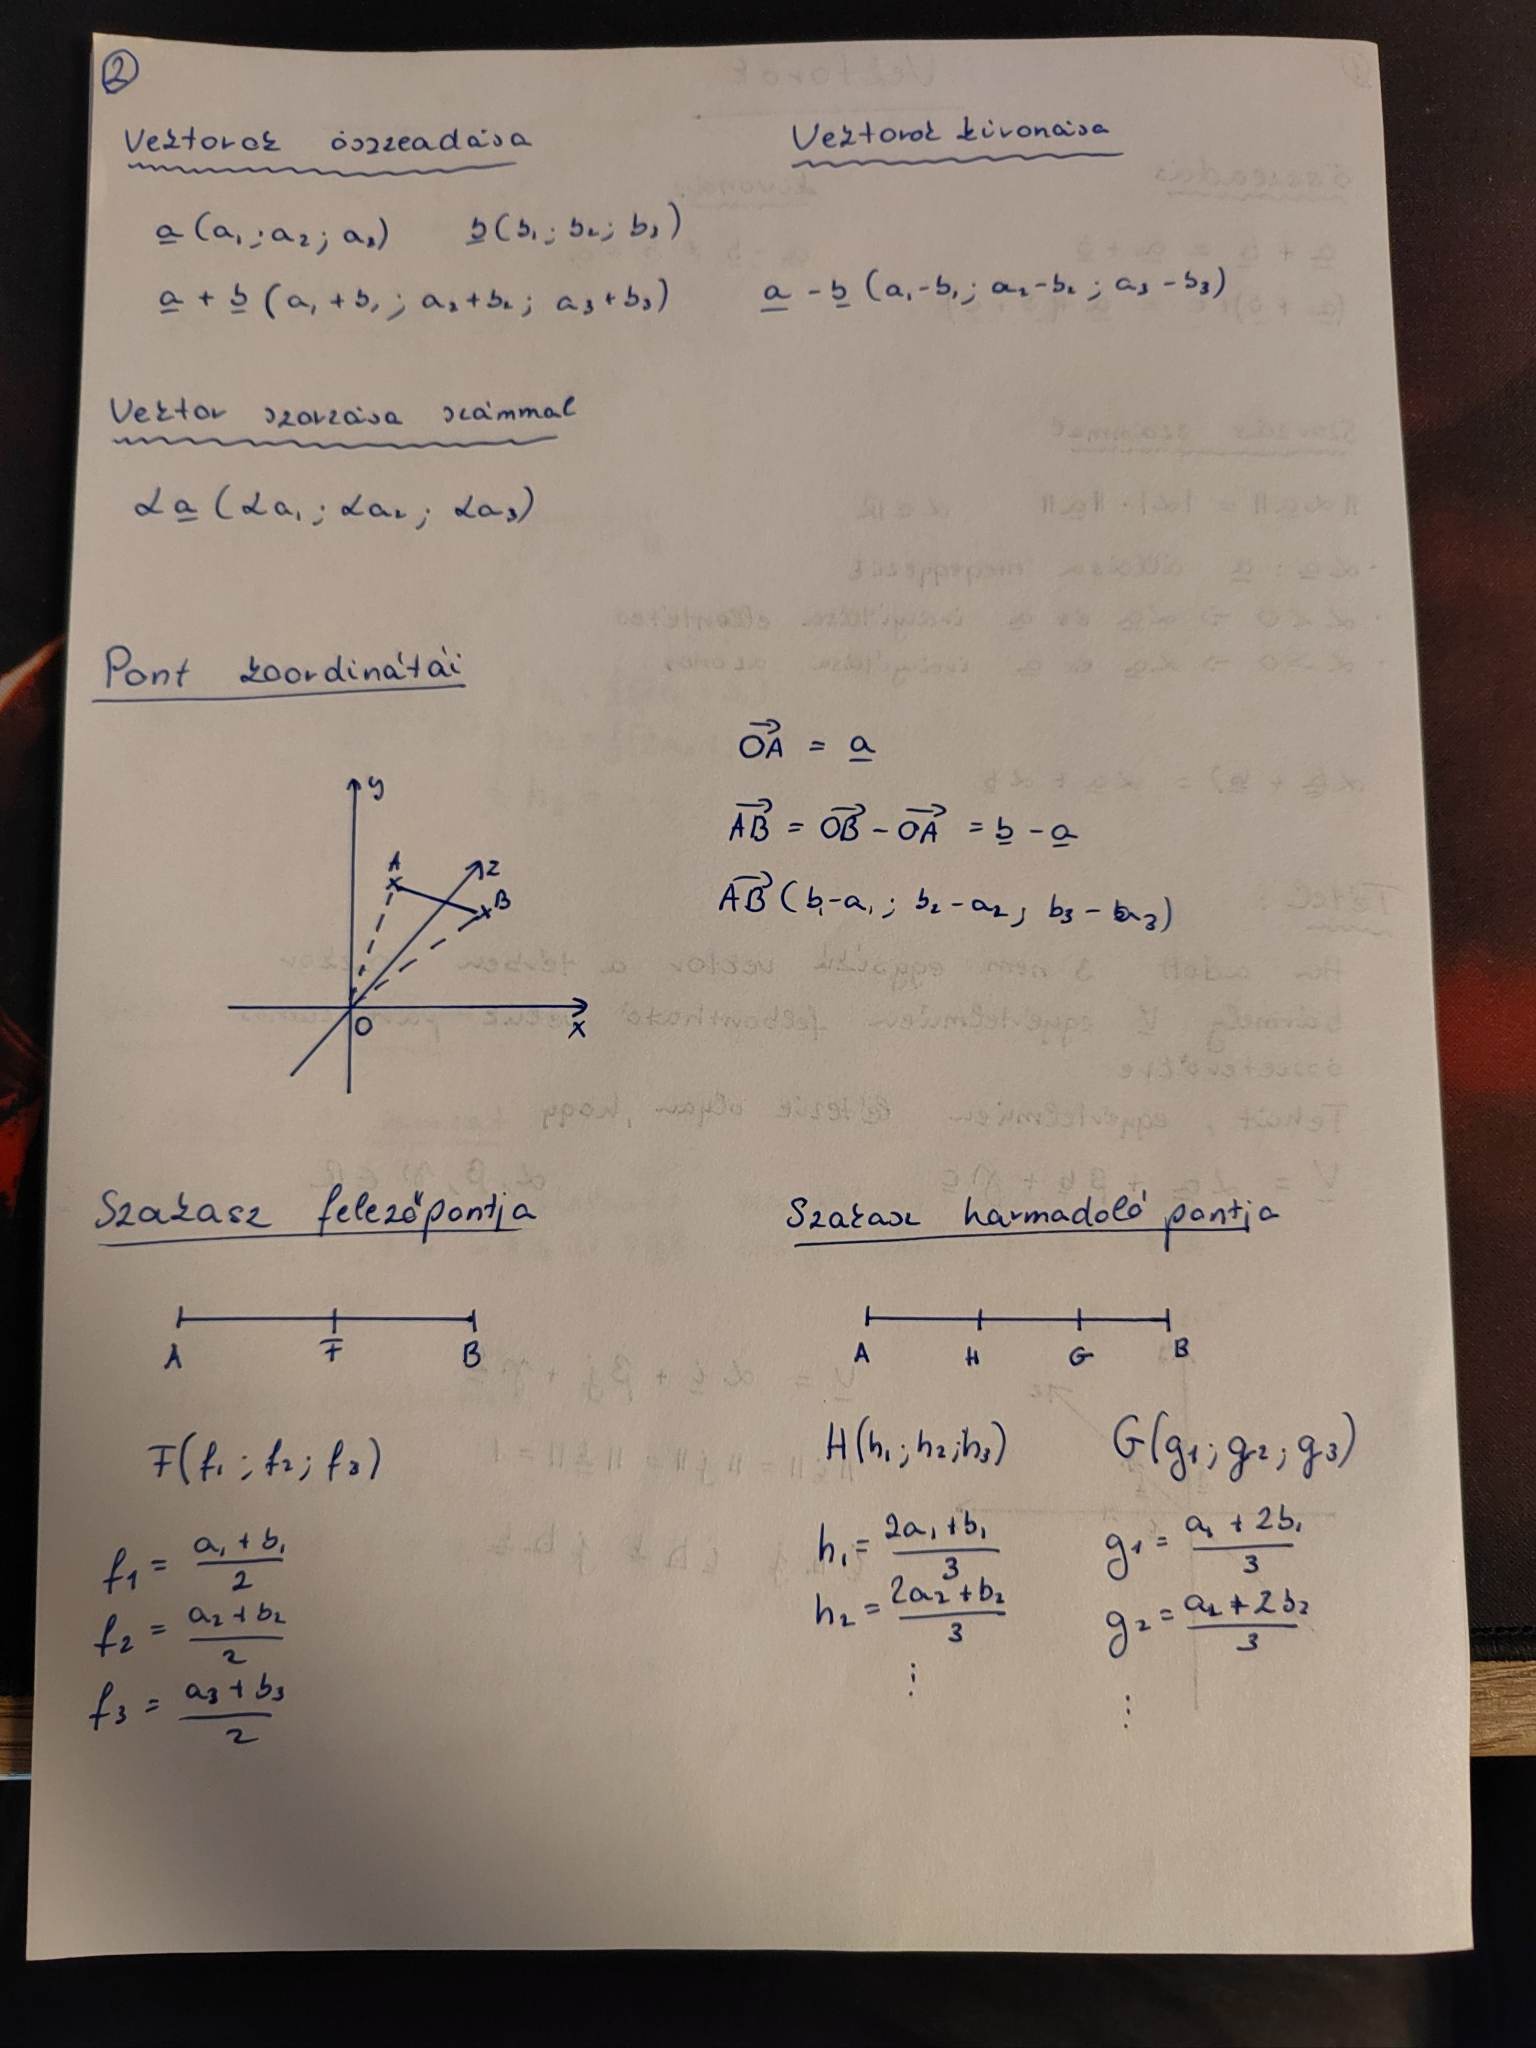 2
Vektorok összeadása
Vektorok kivonása
a (a₁; a₂; a₃) b (b₁; b₂; b₃)
a + b (a₁ + b₁; a₂ + b₂; a₃ + b₃)
a - b (a₁ - b₁; a₂ - b₂; a₃ - b₃)
Vektor szorzása számmal
αa (αa₁; αa₂; αa₃)
Pont koordinátái
y
A
z
B
O
x
OA = a
AB = OB - OA = b - a
AB (b₁ - a₁; b₂ - a₂; b₃ - a₃)
Szakasz felezőpontja
A F B
F(f₁; f₂; f₃)
f₁ = (a₁ + b₁)/2
f₂ = (a₂ + b₂)/2
f₃ = (a₃ + b₃)/2
Szakasz harmadoló pontja
A H G B
H(h₁; h₂; h₃) G(g₁; g₂; g₃)
h₁ = (2a₁ + b₁)/3 g₁ = (a₁ + 2b₁)/3
h₂ = (2a₂ + b₂)/3 g₂ = (a₂ + 2b₂)/3
⋮ ⋮